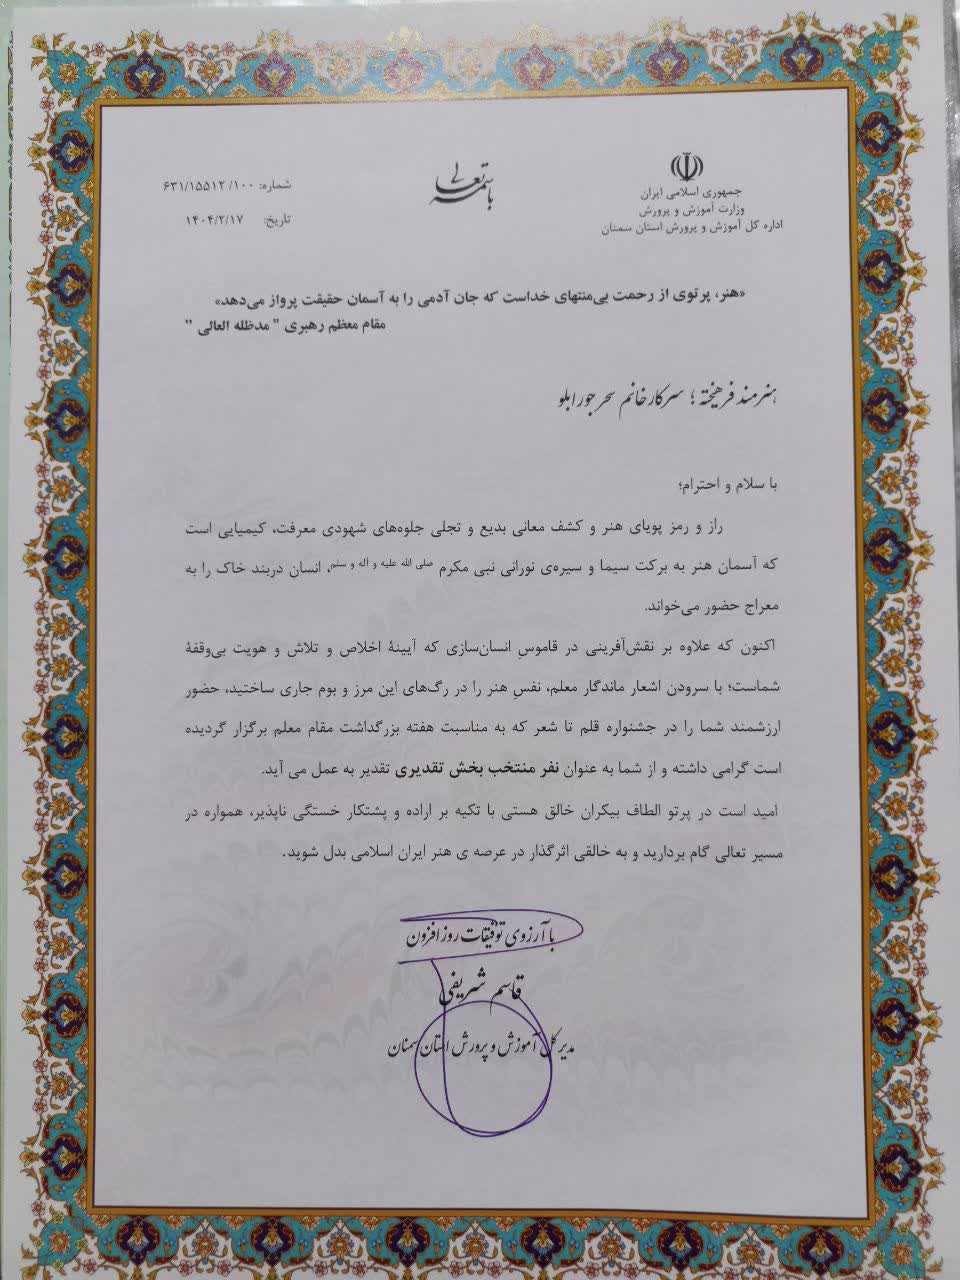 باسمه تعالی
جمهوری اسلامی ایران
وزارت آموزش و پرورش
اداره کل آموزش و پرورش استان سمنان
شماره: ۶۳۱/۱۵۵۱۲/۱۰۰
تاریخ: ۱۴۰۴/۲/۱۷
«هنر، پرتوی از رحمت بی‌منتهای خداست که جان آدمی را به آسمان حقیقت پرواز می‌دهد»
مقام معظم رهبری " مدظله العالی "
هنرمند فرهیخته ؛ سرکار خانم سحر جورابلو
با سلام و احترام؛
راز و رمز پویای هنر و کشف معانی بدیع و تجلی جلوه‌های شهودی معرفت، کیمیایی است
که آسمان هنر به برکت سیما و سیره‌ی نورانی نبی مکرم صلی الله علیه و آله و سلم، انسان دربند خاک را به
معراج حضور می‌خواند.
اکنون که علاوه بر نقش‌آفرینی در قاموسِ انسان‌سازی که آیینهٔ اخلاص و تلاش و هویت بی‌وقفهٔ
شماست؛ با سرودن اشعار ماندگار معلم، نفسِ هنر را در رگ‌های این مرز و بوم جاری ساختید، حضور
ارزشمند شما را در جشنواره قلم تا شعر که به مناسبت هفته بزرگداشت مقام معلم برگزار گردیده
است گرامی داشته و از شما به عنوان نفر منتخب بخش تقدیری تقدیر به عمل می آید.
امید است در پرتو الطاف بیکران خالق هستی با تکیه بر اراده و پشتکار خستگی ناپذیر، همواره در
مسیر تعالی گام بردارید و به خالقی اثرگذار در عرصه ی هنر ایران اسلامی بدل شوید.
با آرزوی توفیقات روزافزون
قاسم شریفی
مدیر کل آموزش و پرورش استان سمنان